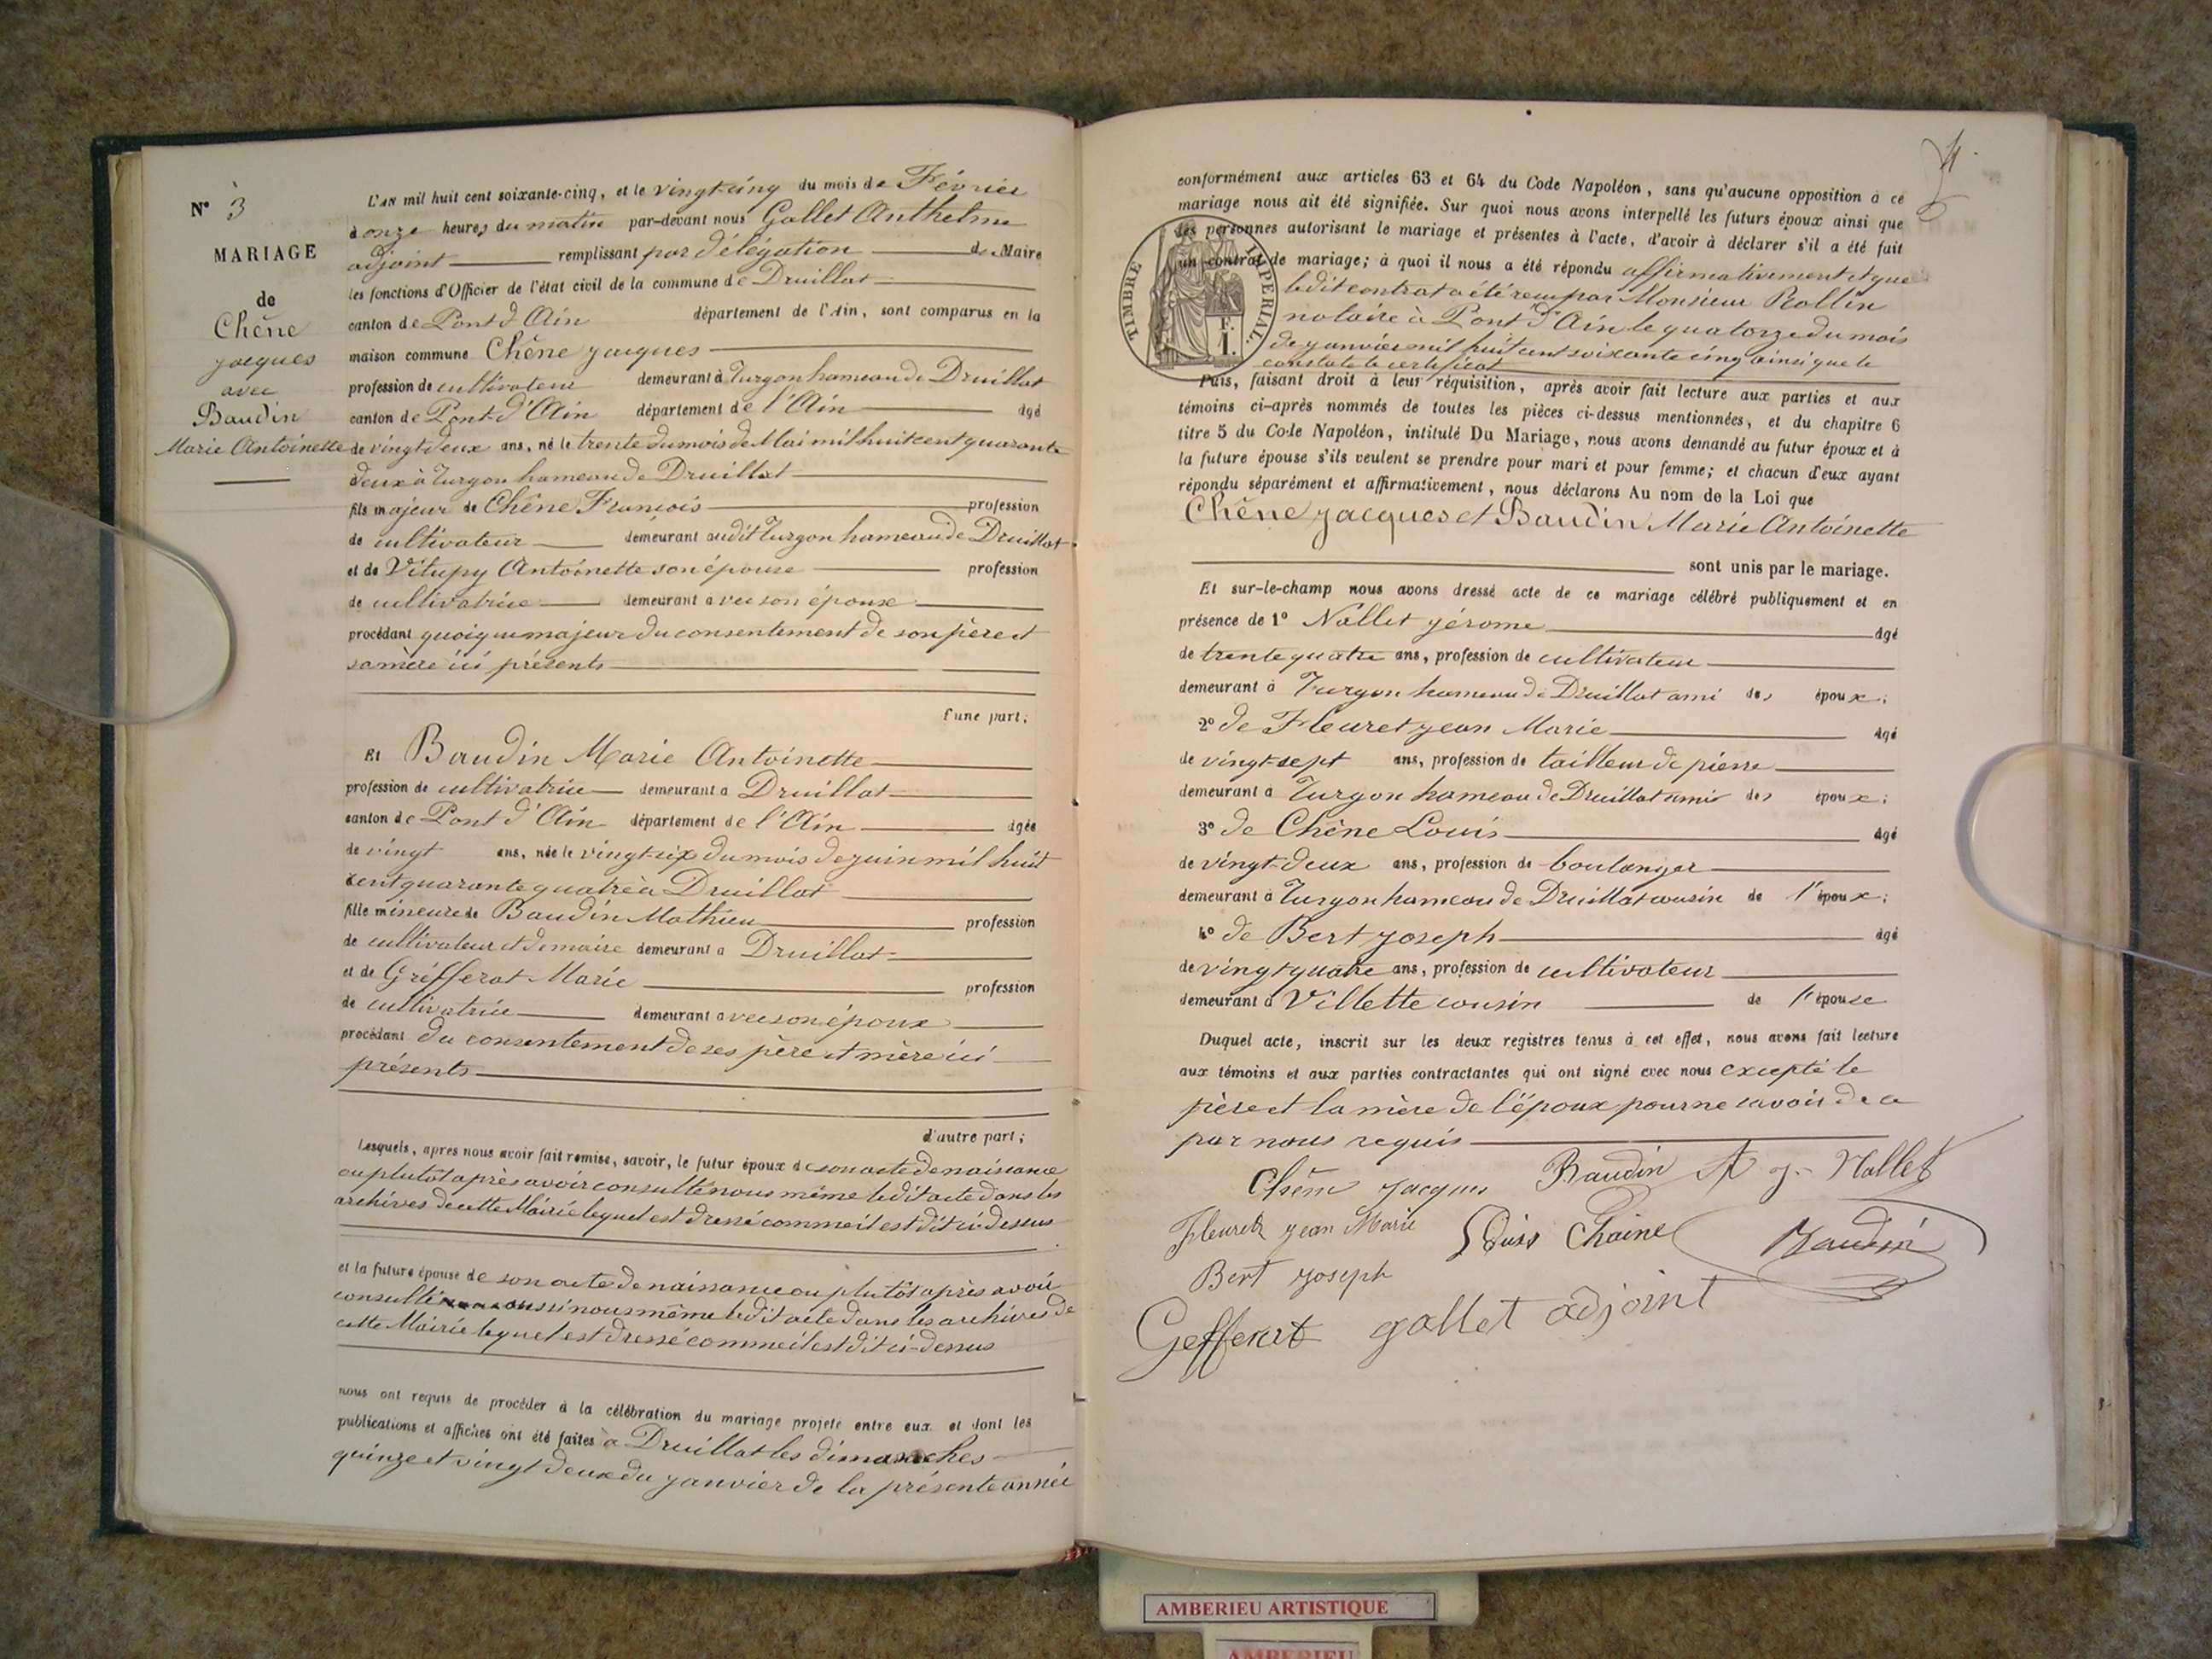 N° 3
MARIAGE
de
Chêne
jacques
avec
Baudin
Marie Antoinette
L'An mil huit cent soixante-cinq, et le vingt cinq du mois de Février
à onze heures du matin par-devant nous Gallet Anthelme
adjoint remplissant par délégation de Maire
les fonctions d'Officier de l'état civil de la commune de Druillat
canton de Pont d'Ain département de l'Ain, sont comparus en la
maison commune Chêne jacques
profession de cultivateur demeurant à Turgon hameau de Druillat
canton de Pont d'Ain département de l'Ain âgé
de vingt deux ans, né le trente du mois de Mai mil huit cent quarante
deux à Turgon hameau de Druillat
fils majeur de Chêne François profession
de cultivateur demeurant audit Turgon hameau de Druillat
et de Vitupy Antoinette son épouse profession
de cultivatrice demeurant avec son épouse
procédant quoique majeur du consentement de son père et
sa mère ici présents
d'une part;
Et Baudin Marie Antoinette
profession de cultivatrice demeurant à Druillat
canton de Pont d'Ain département de l'Ain âgée
de vingt ans, née le vingt six du mois de juin mil huit
cent quarante quatre à Druillat
fille mineure de Baudin Mathieu profession
de cultivateur et de maire demeurant à Druillat
et de Gréfferat Marie profession
de cultivatrice demeurant avec son époux
procédant du consentement de ses père et mère ici
présents
d'autre part;
Lesquels, après nous avoir fait remise, savoir, le futur époux de son acte de naissance
ou plutôt après avoir consulté nous même ledit acte dans les
archives de cette Mairie lequel est dressé comme il est dit ci-dessus
et la future épouse de son acte de naissance ou plutôt après avoir
consulté aussi nous même ledit acte dans les archives de
cette Mairie lequel est dressé comme il est dit ci-dessus
nous ont requis de procéder à la célébration du mariage projeté entre eux, et dont les
publications et affiches ont été faites à Druillat les dimanches
quinze et vingt deux du janvier de la présente année
4
conformément aux articles 63 et 64 du Code Napoléon, sans qu'aucune opposition à ce
mariage nous ait été signifiée. Sur quoi nous avons interpellé les futurs époux ainsi que
les personnes autorisant le mariage et présentes à l'acte, d'avoir à déclarer s'il a été fait
un contrat de mariage; à quoi il nous a été répondu affirmativement et que
ledit contrat a été reçu par Monsieur Rollin
notaire à Pont d'Ain le quatorze du mois
de janvier mil huit cent soixante cinq ainsi que le
constate le certificat
TIMBRE IMPERIAL
F.
1.
Puis, faisant droit à leur réquisition, après avoir fait lecture aux parties et aux
témoins ci-après nommés de toutes les pièces ci-dessus mentionnées, et du chapitre 6
titre 5 du Code Napoléon, intitulé Du Mariage, nous avons demandé au futur époux et à
la future épouse s'ils veulent se prendre pour mari et pour femme; et chacun d'eux ayant
répondu séparément et affirmativement, nous déclarons Au nom de la Loi que
Chêne jacques et Baudin Marie Antoinette
sont unis par le mariage.
Et sur-le-champ nous avons dressé acte de ce mariage célébré publiquement et en
présence de 1° Nallet jérome âgé
de trente quatre ans, profession de cultivateur
demeurant à Turgon hameau de Druillat ami des époux;
2° de Fleuret jean Marie âgé
de vingt-sept ans, profession de tailleur de pierre
demeurant à Turgon hameau de Druillat ami des époux;
3° de Chêne Louis âgé
de vingt-deux ans, profession de boulanger
demeurant à Turgon hameau de Druillat cousin de l'époux;
4° de Bert joseph âgé
de vingt quatre ans, profession de cultivateur
demeurant à Villette cousin de l'épouse
Duquel acte, inscrit sur les deux registres tenus à cet effet, nous avons fait lecture
aux témoins et aux parties contractantes qui ont signé avec nous excepté le
père et la mère de l'époux pour ne savoir de ce
par nous requis
Chêne jacques Baudin A j. Nallet
Fleuret jean Marie Louis Chaine Baudin
Bert joseph
Gefferat gallet adjoint
AMBERIEU ARTISTIQUE
AMBERIEU